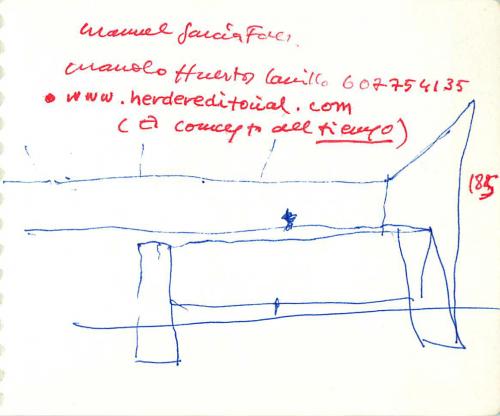 Manuel García Fdez.
Manolo Huertos Carrillo 607754135
• www.herdereditorial.com
(El concepto del tiempo)
185